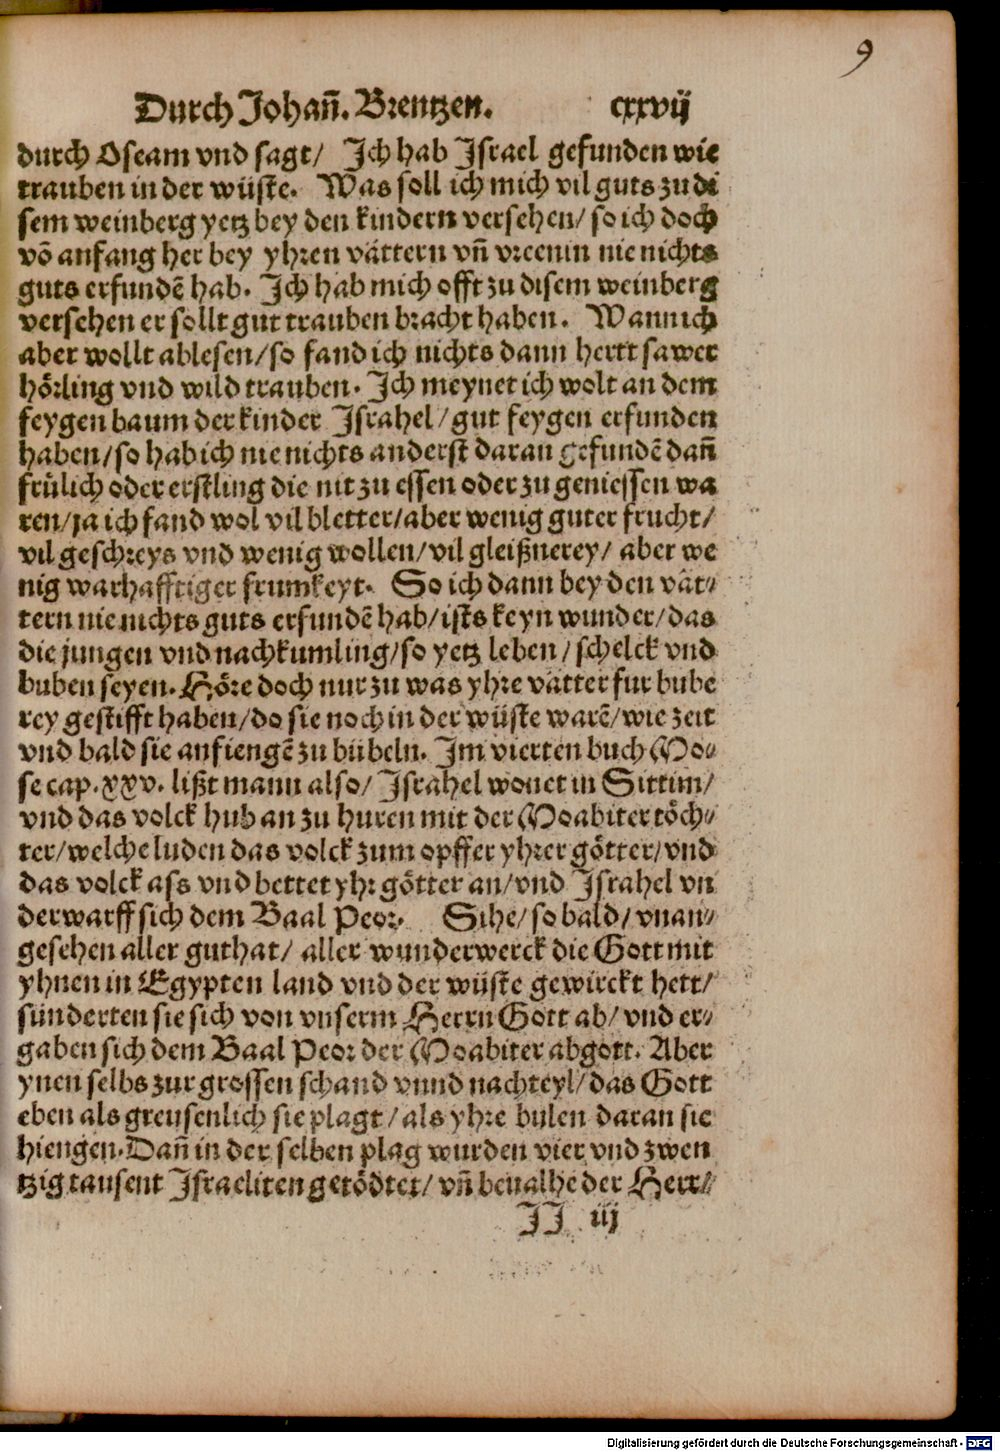 9
Durch Johañ. Brentzen. cxxvij
durch Oseam vnd sagt/ Ich hab Israel gefunden wie
trauben in der wüste. Was soll ich mich vil guts zu di
sem weinberg yetz bey den kindern versehen/ so ich doch
vō anfang her bey yhren vättern vñ vreenin nie nichts
guts erfundē hab. Ich hab mich offt zu disem weinberg
versehen er sollt gut trauben bracht haben. Wann ich
aber wollt ablesen/ so fand ich nichts dann hertt sawer
hörling vnd wild trauben. Ich meynet ich wolt an dem
feygen baum der kinder Israhel/ gut feygen erfunden
haben/ so hab ich nie nichts anderst daran gefundē dañ
frülich oder erstling die nit zu essen oder zu geniessen wa
ren/ ja ich fand wol vil bletter/ aber wenig guter frucht/
vil geschreys vnd wenig wollen/ vil gleißnerey/ aber we
nig warhafftiger frumkeyt. So ich dann bey den vät⸗
tern nie nichts guts erfundē hab/ ists keyn wunder/ das
die jungen vnd nachkumling/ so yetz leben/ schelck vnd
buben seyen. Höre doch nur zu was yhre vätter fur bube
rey gestifft haben/ do sie noch in der wüste warē/ wie zeit
vnd bald sie anfiengē zu bübeln. Im vierten buch Mo⸗
se cap. xxv. lißt mann also/ Israhel wonet in Sittim/
vnd das volck hub an zu huren mit der Moabiter töch⸗
ter/ welche luden das volck zum opffer yhrer götter/ vnd
das volck ass vnd bettet yhr götter an/ vnd Israhel vn
derwarff sich dem Baal Peor. Sihe/ so bald/ vnan⸗
gesehen aller guthat/ aller wunderwerck die Gott mit
yhnen in Egypten land vnd der wüste gewirckt hett/
sünderten sie sich von vnserm Herrn Gott ab/ vnd er⸗
gaben sich dem Baal Peor der Moabiter abgott. Aber
ynen selbs zur grossen schand vnnd nachteyl/ das Gott
eben als greusenlich sie plagt/ als yhre bulen daran sie
hiengen. Dañ in der selben plag wurden vier vnd zwen
tzig tausent Israeliten getödtet/ vñ beualhe der Herr⸗
II iij
Digitalisierung gefördert durch die Deutsche Forschungsgemeinschaft - DFG